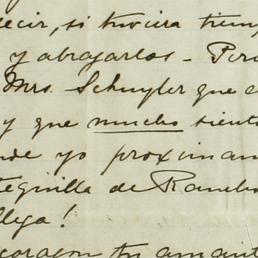 decir, si tuviera tiemp
y abrazarlos - Per
Mrs. Schuyler que e
y que mucho sient
de yo proxima
tequilla de Rancho
llega!
corazon tu amant